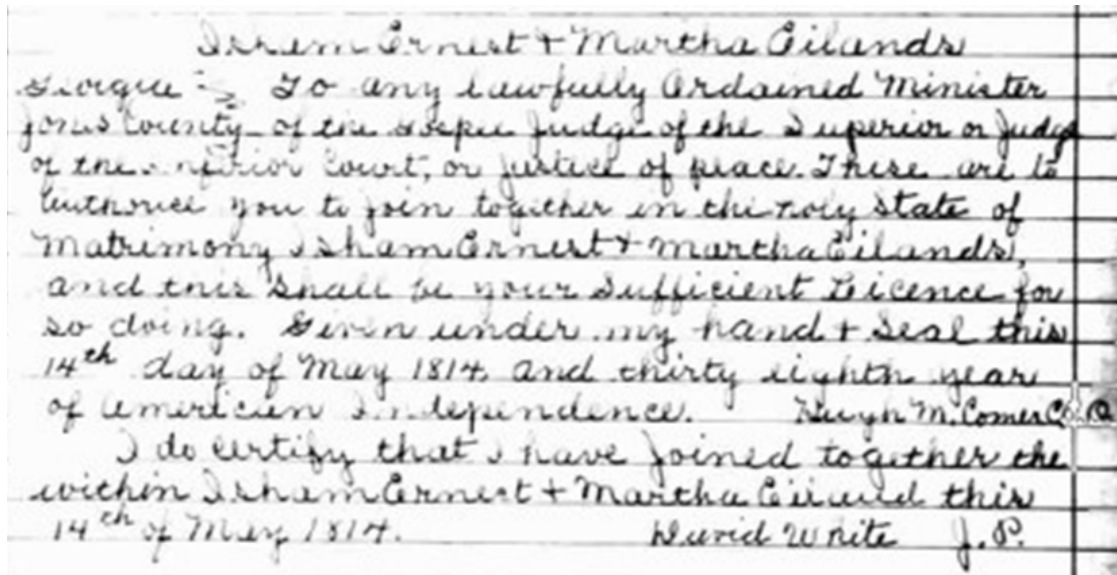 Isham Ernest + Martha Eilands
Georgia To any lawfully Ordained Minister
Jones County of the Gospel Judge of the Superior or Judge
of the Inferior Court, or Justice of peace. These are to
Authorice you to join together in the holy State of
Matrimony Isham Ernest + Martha Eilands,
and this Shall be your Sufficient Licence for
so doing. Given under my hand + Seal this
14th day of May 1814, and thirty eighth year
of American Independence. Hugh M. Comer C.
I do certify that I have joined together the
within Isham Ernest + Martha Eiland this
14th of May 1814. David White J.P.